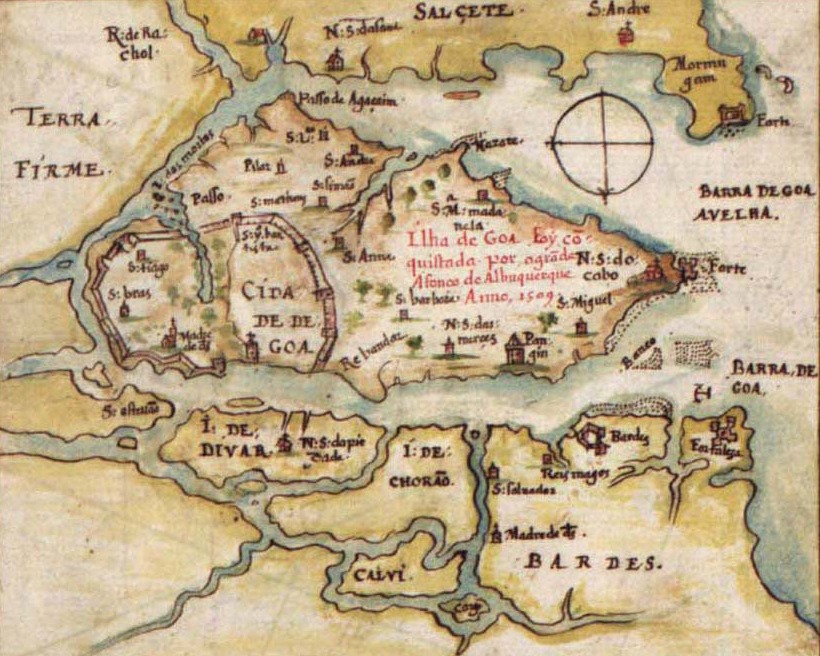 SALÇETE.
S: Andre
R: de Ra:
chol.
Mormu
gam
Forte
Passo de Agaçaim
TERRA
FIRME.
Nazare.
S: L:
Pilar
S: Andre
S: simão
S: matheus
Passo
dos mortos
BARRA DE GOA
AVELHA.
S: M: mada
nela
Ilha de GOA foy cõ-
quistada por ogrãde
Afonco de Albuquerque
Anno, 1509.
N: S: do
Cabo
Forte
S: Anna
S: tiago
S: bras
Madre
de ds
CIDA
DE DE
GOA
S: barbora
S: Miguel
N: S: dos
Pan
gin
Rebandar
Banco
BARRA, DE
GOA,
S: esteuão
I: DE:
DIVAR.
N: S: da pie
dade
I: DE:
CHORÃO.
Bardes
Reis magos
Fortaleza
S: saluador
Madre de ds.
BARDES.
CALVI